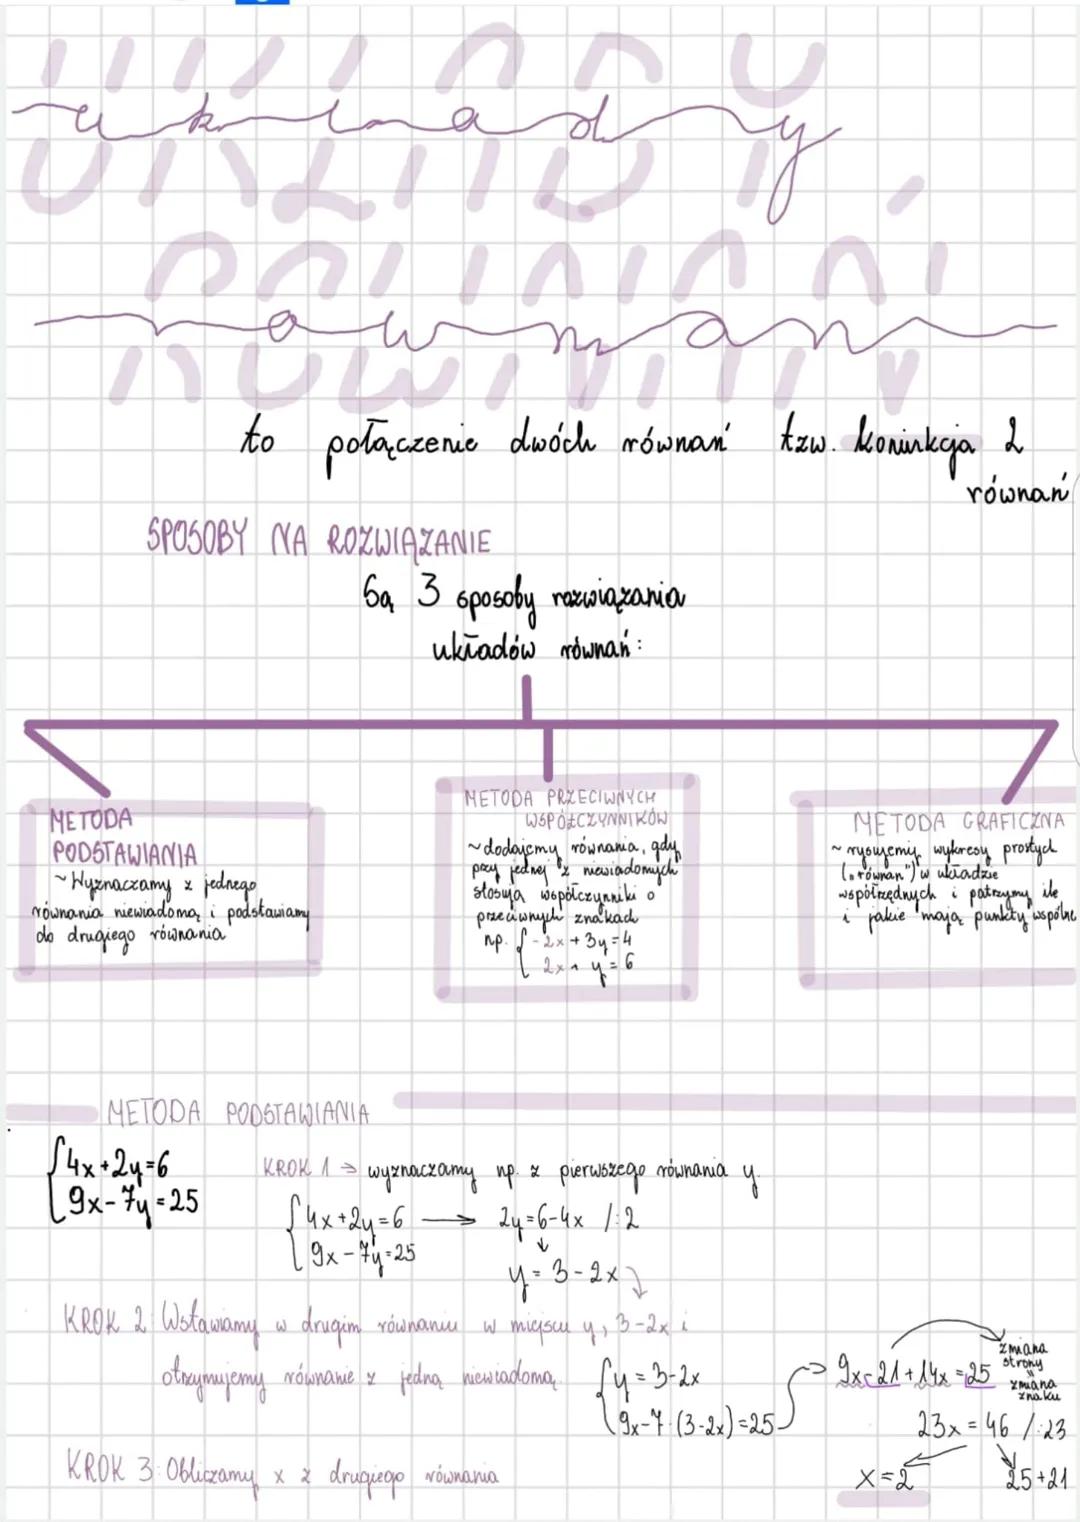 układy
równań
to połączenie dwóch równań tzw. koniukcja 2
równań
SPOSOBY NA ROZWIĄZANIE
Są 3 sposoby rozwiązania
układów równań:
METODA
PODSTAWIANIA
~ Wyznaczamy z jednego
równania niewiadomą i podstawiamy
do drugiego równania
METODA PRZECIWNYCH
WSPÓŁCZYNNIKÓW
~ dodajemy równania, gdy
przy jednej z niewiadomych
stosują współczynniki o
przeciwnych znakach
np. { -2x + 3y = 4
2x + y = 6
METODA GRAFICZNA
~ rysujemy wykresy prostych
(„równań") w układzie
współrzędnych i patrzymy ile
i jakie mają punkty wspólne
METODA PODSTAWIANIA
{ 4x+2y=6
9x-7y=25
KROK 1 → wyznaczamy np. z pierwszego równania y.
{ 4x+2y=6 → 2y=6-4x /:2
9x-7y=25
↓
y = 3-2x
KROK 2: Wstawiamy w drugim równaniu w miejscu y, 3-2x i
otrzymujemy równanie z jedną niewiadomą.
{ y = 3-2x
9x-7·(3-2x)=25
9x-21+14x=25
zmiana
strony
=
zmiana
znaku
23x = 46 /:23
x=2
25+21
KROK 3: Obliczamy x z drugiego równania